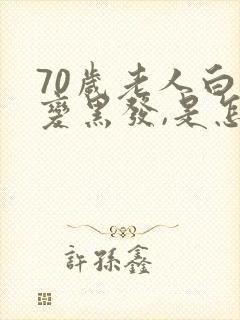 70歲老人白
變黑發,是怎
許孫鑫